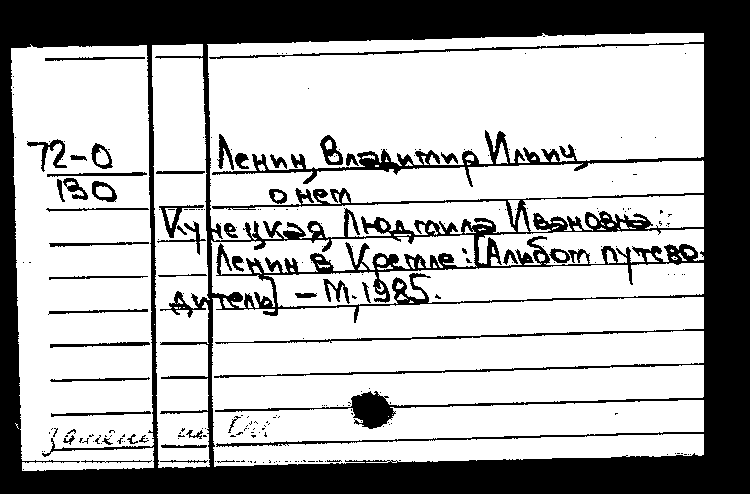 72-0 Ленин, Владимир Ильич,
130 о нем
Кунецкая, Людмила Ивановна:
Ленин в Кремле: [Альбом путево-
дитель] - М, 1985.